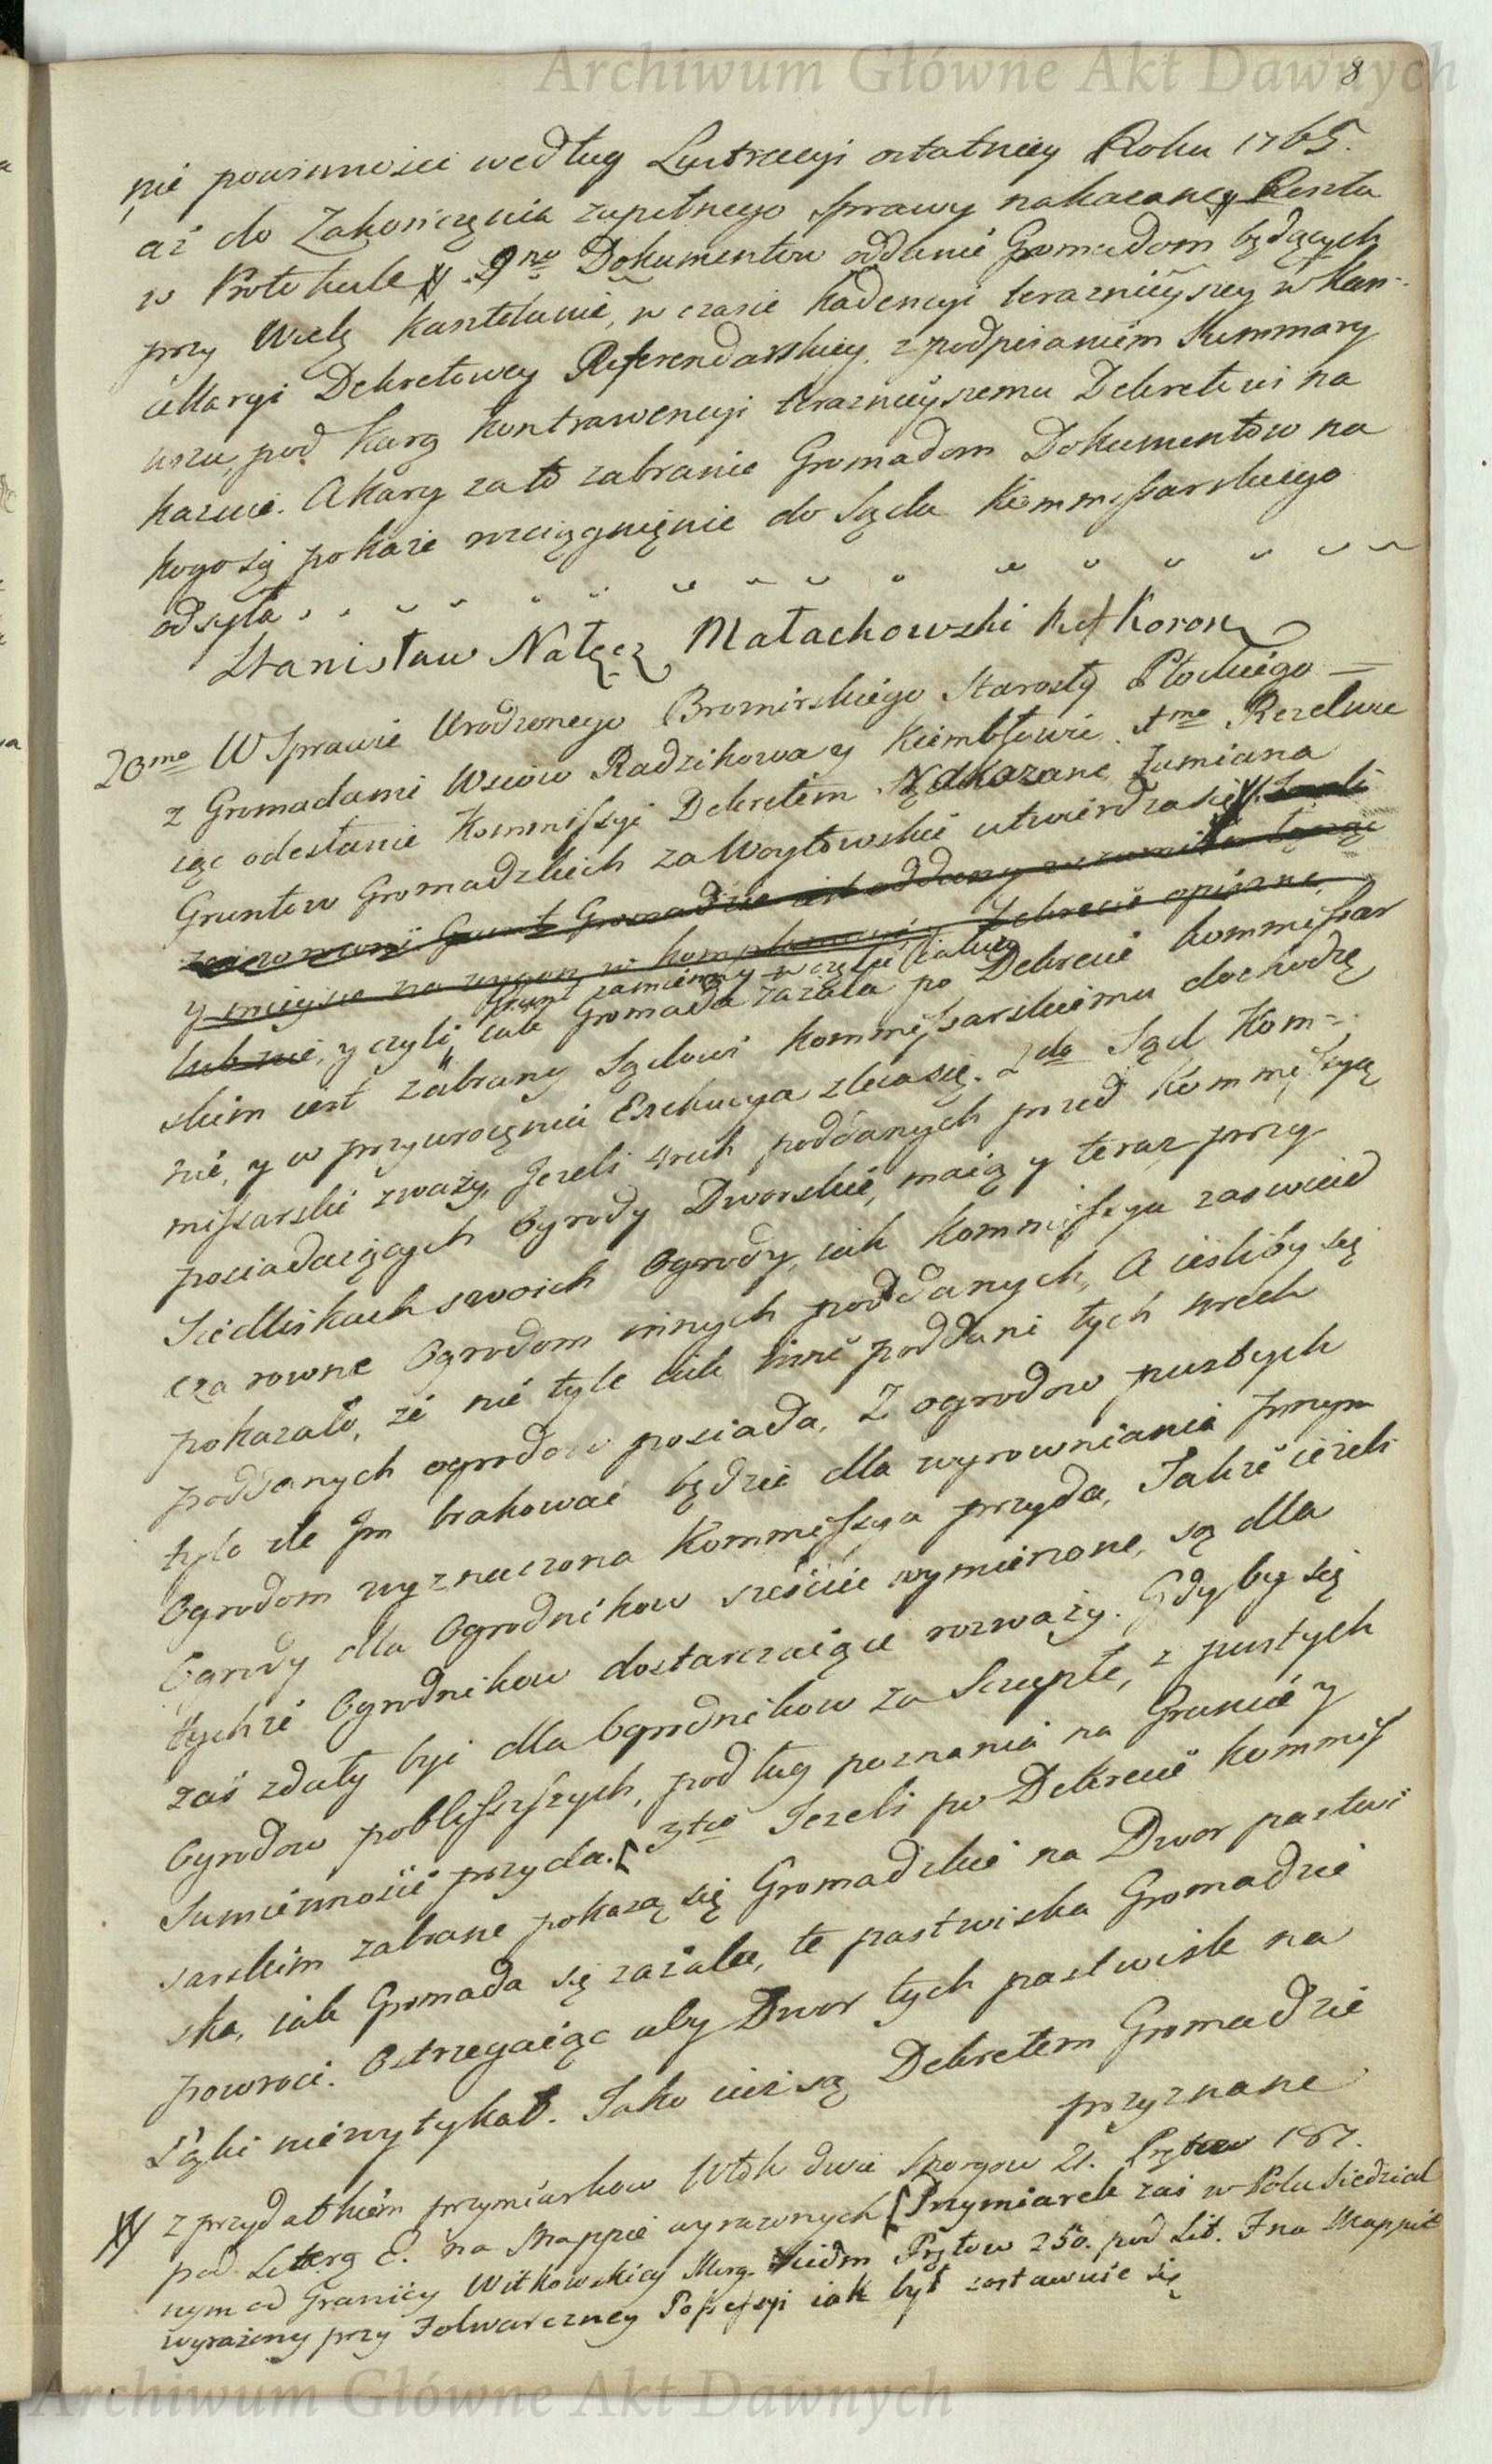 Archiwum Główne Akt Dawnych
8
nié powinnosci według Lustracyi ostatniey Roku 1765.
aż do Zakończęnia zupełnego Sprawy nakazaney Reszta
w Protokule # 9no Dokumentow oddanie Gromadom będących
przy Wielż Kasztelanie, w czasie Kadencyi teraznieyszey w Kan-
cellaryi Dekretowey Referendarskiey, z podpisaniem Summary
uszu, pod karą kontrawencyi teraznieyszemu Dekretowi na
kazuie. A kary za to zabranie Gromadom Dokumentow na
kogo się pokaże rozciągnięnie do Sądu Kommissarskiego
odsyła
Stanisław Nałęcz Małachowski Ref Koron
20mo W Sprawie Urodzonego Bromirskiego Starosty Płockiego
z Gromadami Wsiow Radzikowa y Kiembłowie 1mo Rezolwu
iąc odesłanie Kommissyi Dekretem Nadkazane Zamiana
Gruntow Gromadzkich za Woytowskie utwierdza się #. Jeżeli
zamieniony Grunt Gromadzie iest oddany
y mieysce na wygon w kompl Dekrecie opisane,
Grunt zamienny w części
lub nie, y czyli, iak Gromada zażala po Dekrecie kommissar
skim iest zabrany Sądowi kommissarskiemu dochodzę
nié, y w przywrocęnia Exekucya zleca się. 2do Sąd Kom=
missarski zważy, Jezeli 3rech poddanych przed Kommissyą
posiadaiących Ogrody Dworskié, maią y teraz przy
Siedliskach swoich Ogrody, iak Kommissya zaswiad
cza rowne Ogrodom innych poddanych, A iesliby się
pokazało, że nie tyle iak inni poddani tych trzech
poddanych ogrodow posiada, Z ogrodow pustych
tyle ile Im brakować będzie dla wyrownania innym
Ogrodom wyznaczona Kommissya przyda, Także ieżeli
Ogrody dla Ogrodnikow sześciu wymierzone, są dla
tychże Ogrodnikow dostarczaiące rozważy. Gdyby się
zaś zdały być dla Ogrodnikow za Szczupłe, z pustych
Ogrodow poblisszych, podług poznania na Gruncie y
Sumiennosci przyda. [3tio Jezeli po Dekrecie kommis
sarskim zabrane pokażą się Gromadzkie na Dwor pastwi
ska, iak Gromada się zażala, te pastwiska Gromadzie
powroci. Ostrzegaiąc aby Dwor tych pastwisk na
Łąki niewytykał. Jako iuż są Dekretem Gromadzie
przyznane
# z przydatkiem przymiarkow Włok dwie Morgow 21. Prętow 187.
pod Literą E. na Mappie wyrazonych [Przymiarek zaś w Polu Siedzial
nym od Granicy Witkowskiey Morg. siedm Prętow 250. pod Lit. F na Mappie
wyrażony przy Folwarczney Possessyi iak był zostawuie się
Archiwum Główne Akt Dawnych